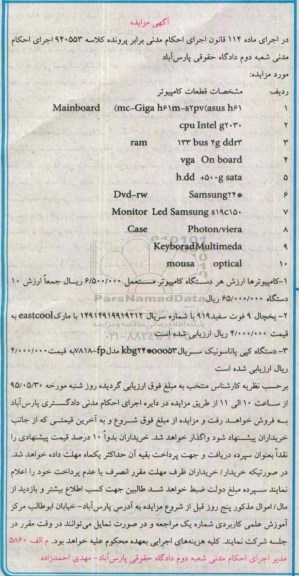 آگهی مزایده
در اجرای ماده ۱۱۴ قانون اجرای احکام مدنی برابر پرونده کلاسه ۹۲۰۵۵۳ اجرای احکام
مدنی شعبه دوم دادگاه حقوقی پارس‌آباد
مورد مزایده:
ردیف مشخصات قطعات کامپیوتر
۱ Mainboard (mc-Giga h۶۱m-s۲pv(asus h۶۱
۲ cpu Intel g۲۰۳۰
۳ ram ۱۳۳ bus ۴g ddr۳
۴ vga On board
۵ h.dd +۵۰۰g sata
۶ Dvd-rw Samsung۲۴*
۷ Monitor Led Samsung s۱۹c۱۵۰
۸ Case Photon/viera
۹ KeyboradMultimeda
۱۰ mousa optical
۱-کامپیوترها ارزش هر دستگاه کامپیوتر مستعمل ۶/۵۰۰/۰۰۰ ریال جمعاً ارزش ۱۰
دستگاه ۶۵/۰۰۰/۰۰۰ ریال
۲- یخچال ۹ فوت سفید۹۱۹ با شماره سریال ۱۴۹۱۴۹۱۹۱۹۲۱۲ با مارکeastcool به
قیمت ۴/۰۰۰/۰۰۰ ریال ارزیابی شده است
۳-دستگاه کپی پاناسونیک سریالkbg۲۴*۰۰۰۵۳ مدلfp-۷۸۱۸به قیمت۴/۰۰۰/۰۰۰
ریال ارزیابی شده است
برحسب نظریه کارشناس منتخب به مبلغ فوق ارزیابی گردیده روز شنبه مورخه ۹۵/۰۵/۳۰
از ساعت ۱۰ الی ۱۱ از طریق مزایده در دایره اجرای احکام مدنی دادگستری پارس‌آباد
به فروش خواهد رفت و مزایده از مبلغ فوق شروع و به آخرین قیمتی که از جانب
خریداران پیشنهاد شود واگذار خواهد شد. خریداران بدواً ۱۰ درصد قیمت پیشنهادی را
نقداً بعنوان سپرده دریافت و جهت پرداخت بقیه آن حداکثر یکماه مهلت داده خواهد شد.
در صورتیکه خریدار/خریداران ظرف مهلت مقرر انصراف یا عدم پرداخت خود را اعلام
نمایند سپرده مبلغ دولت ضبط خواهد شد طالبین جهت کسب اطلاع بیشتر و بازدید از
مال/ اموال مذکور پنج روز قبل از شروع مزایده به آدرس پارس‌آباد- خیابان ابوطالب مرکز
آموزش علمی کاربردی شماره یک مراجعه و در صورت تمایل می‌توانند در وقت مقرر در
جلسه شرکت نمایند. کلیه هزینه‌های اجرایی بعهده محکوم علیه خواهد بود. م الف ۵۸۶۰
مدیر اجرای احکام مدنی شعبه دوم دادگاه حقوقی پارس‌آباد- مهدی احمدزاده